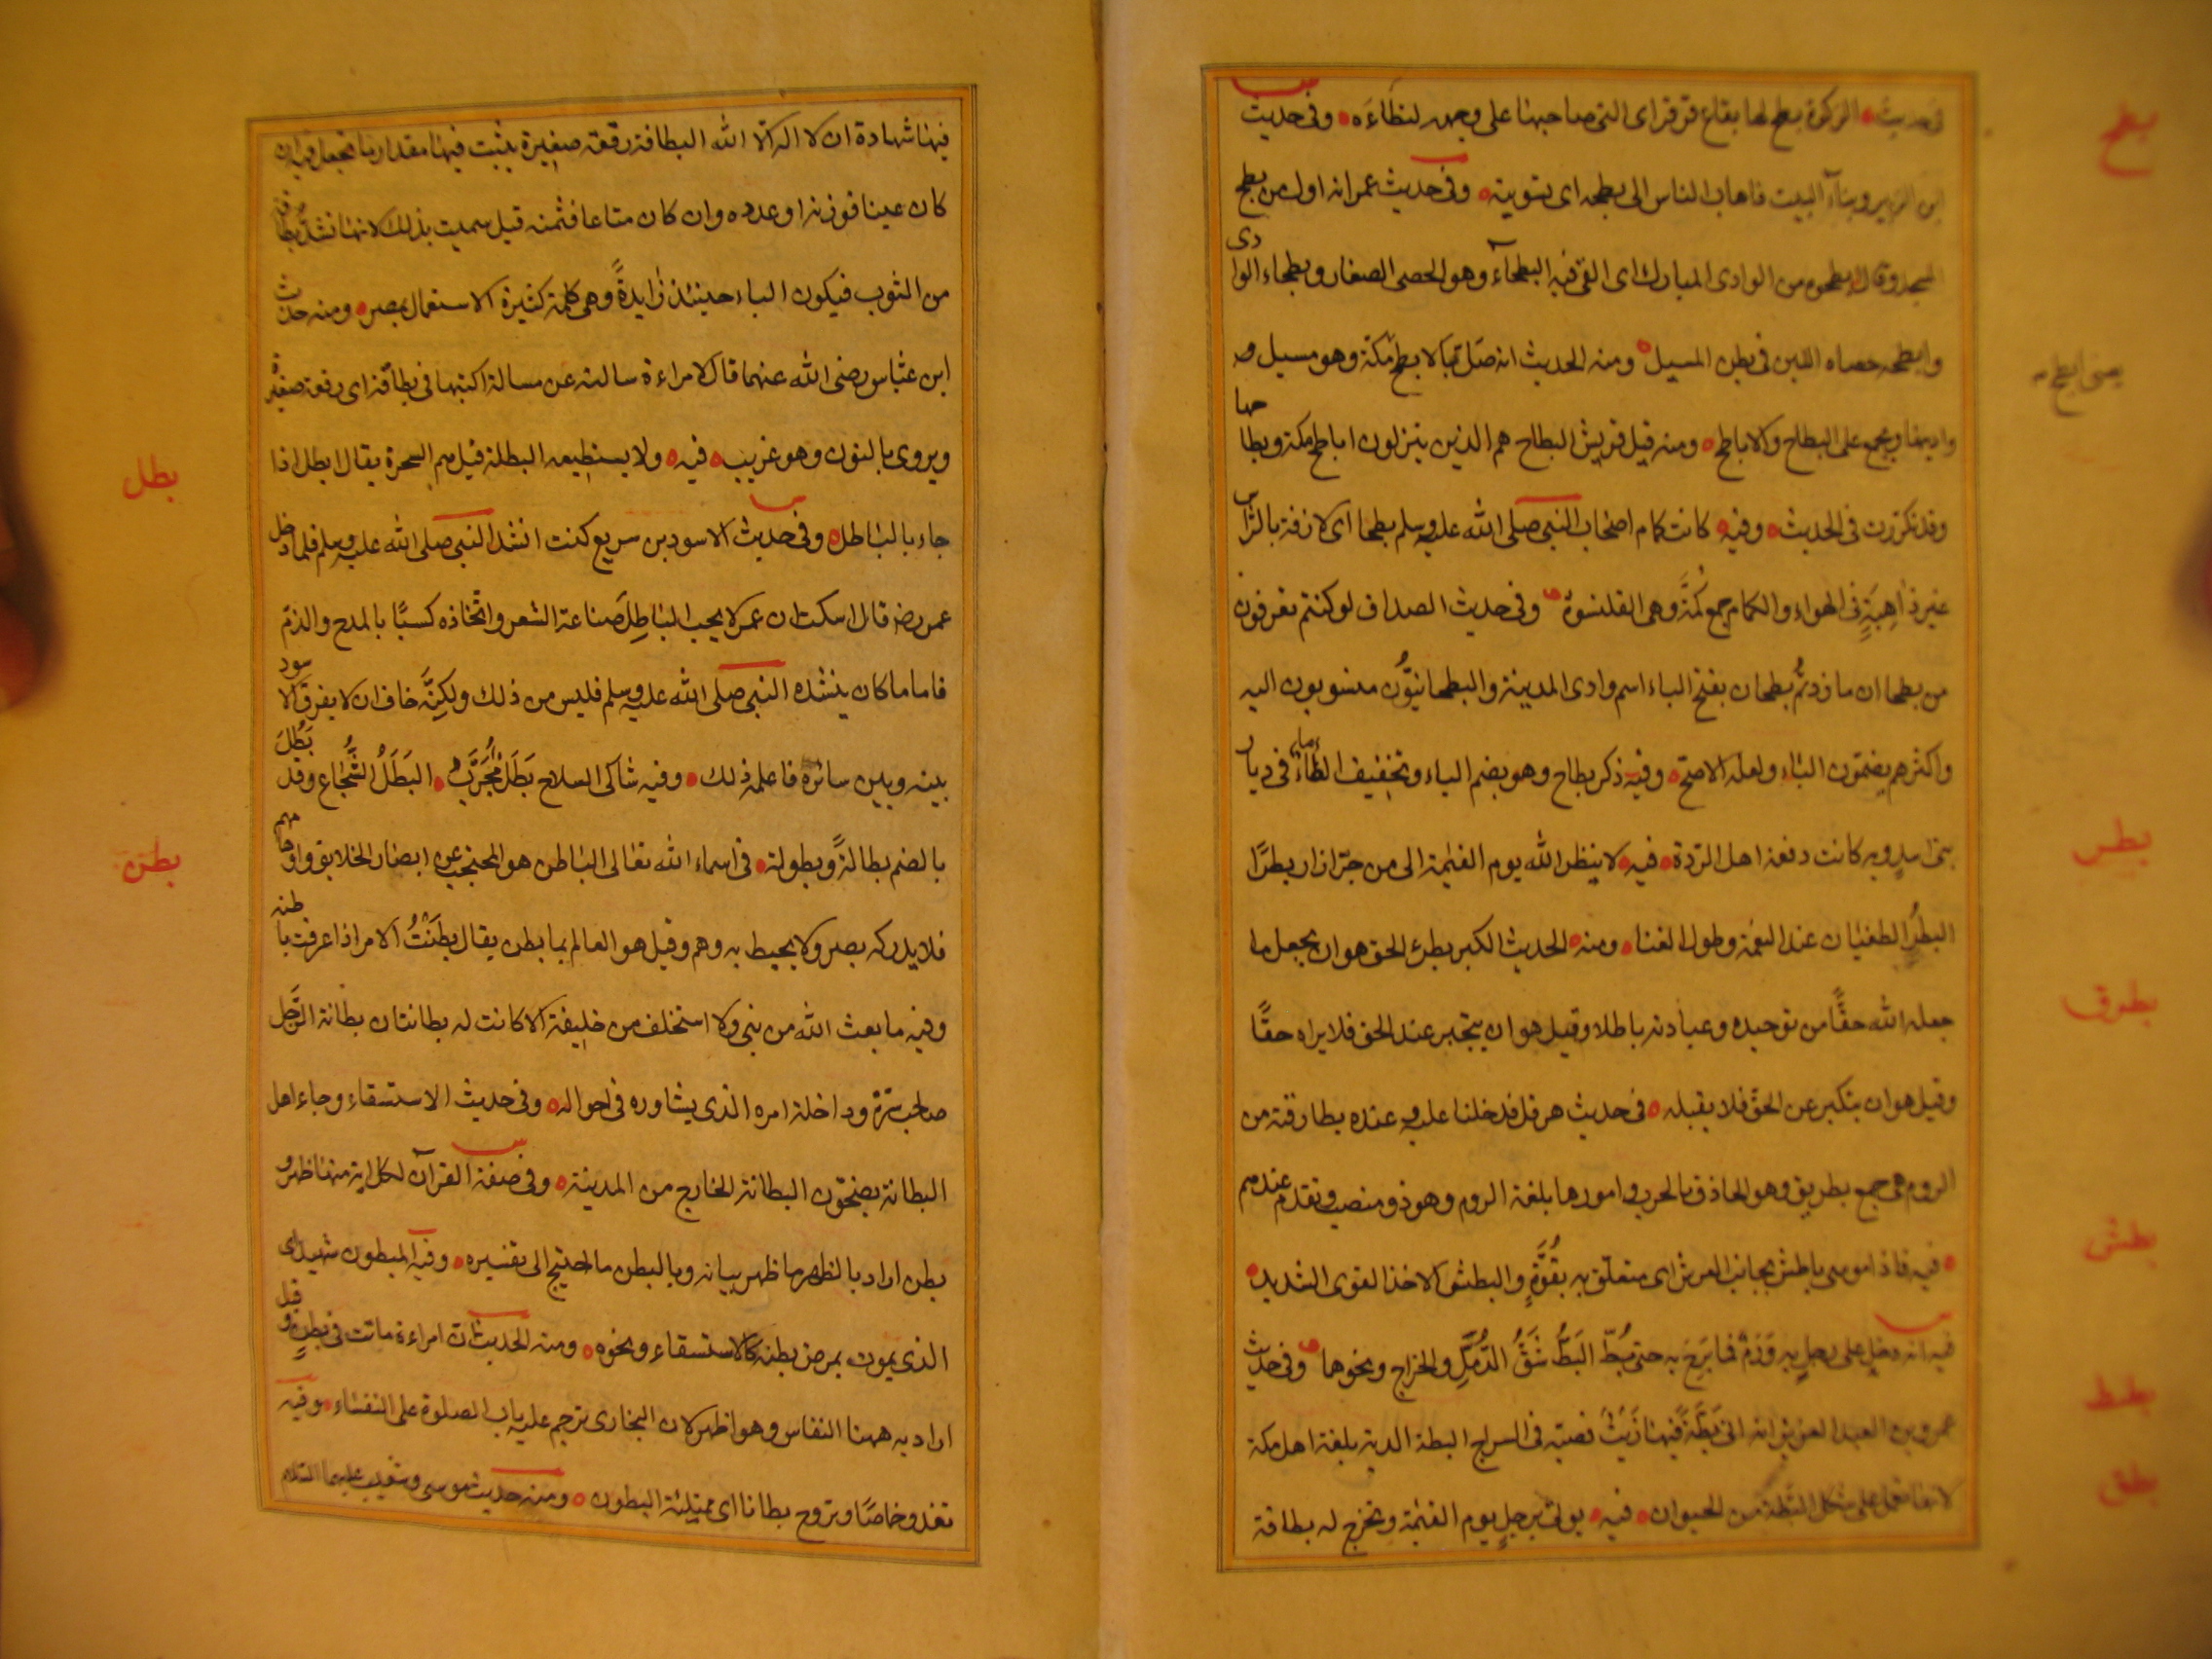 بطح
فى حديث الزكوة بطح لها بقاع قرقر اى القى صاحبها على وجهه لتطاءه وفى حديث
ابن الزبير وبناء البيت فاهاب الناس الى بطحه اى تسويته وفى حديث عمر انه اول من بطح
المسجد وقال ابطحوه من الوادى المبارك اى القى فيه البطحآء وهو الحصى الصغار وبطحاء الوادى
وابطحه حصاه اللين فى بطن المسيل ومنه الحديث انه صلى بالابطح مكة وهو مسيل
ويجمع على البطاح والاباطح ومنه قيل قريش البطاح هم الذين ينزلون اباطح مكة وبطاحها
وقد تكررت فى الحديث وفيه كانت كمام اصحاب النبى صلى الله عليه وسلم بطحا اى لازقة بالراس
غير ذاهبة فى الهواء والكمام جمع كمة وهى القلنسوة وفى حديث الصداق لو كنتم تغرفون
من بطحان ما زدتم بطحان بفتح الباء اسم وادى المدينة والبطحانيون منسوبون اليه
واكثرهم يضمون الباء ولعله الاصح وفيه ذكر بطاح وهو بضم الباء وتخفيف الطاء ماء فى ديار
بطر
بنى اسد وبه كانت دفعة اهل الردة فيه لا ينظر الله يوم القيمة الى من جر ازاره بطرا
البطر الطغيان عند النعمة وطول الغنا ومنه الحديث الكبر بطر الحق هو ان يجعل ما
بطرق
جعله الله حقا من توحيده وعبادته باطلا وقيل هو ان يتجبر عند الحق فلا يراه حقا
وقيل هو ان يتكبر عن الحق فلا يقبله فى حديث هرقل فدخلنا عليه وعنده بطارقته من
الروم هى جمع بطريق وهو الحاذق بالحرب وامورها بلغة الروم وهو ذو منصب وتقدم عندهم
بطش
فيه فاذا موسى باطش بجانب العرش اى متعلق به بقوة والبطش الاخذ القوى الشديد
بطط
فيه انه دخل على رجل به ورم فما برح به حتى بط البط شق الدمل والخراج ونحوهما وفى حديث
عمر بن العبد العزيز انه اتى بطة فيها زيت فصبه فى السراج البطة الدبة بلغة اهل مكة
بطق
لانها تعمل على شكل البطة من الحيوان فيه يوتى برجل يوم القيمة وتخرج له بطاقة
فيها شهادة ان لا اله الا الله البطاقة رقعة صغيرة يثبت فيها مقدار ما تجعل فيه ان
كان عينا فوزنه او عدده وان كان متاعا فثمنه قيل سميت بذلك لانها تشد بطاقة
من الثوب فيكون الباء حينئذ زايدة وهى كلمة كثيرة الاستعمال بمصر ومنه حديث
ابن عباس رضى الله عنهما قال لامراءة سالته عن مسالة اكتبها فى بطاقة اى رقعة صغيرة
بطل
ويروى بالنون وهو غريب فيه ولا يستطيعه البطلة قيل هم السحرة يقال ابطل اذا
جاء بالباطل وفى حديث الاسود بن سريع كنت انشد النبى صلى الله عليه وسلم فلما دخل
عمر رضه قال اسكت ان عمر لا يحب الباطل صناعة الشعر واتخاذه كسبا بالمدح والذم
فاما ما كان ينشده النبى صلى الله عليه وسلم فليس من ذلك ولكنه خاف ان لا يفرق الاسود
بينه وبين سائره فاعلمه ذلك وفيه شاكى السلاح بطل مجرب البطل الشجاع وقد بطل
بطن
بالضم بطالة وبطولة فى اسماء الله تعالى الباطن هو المحتجب عن ابصار الخلايق واوهامهم
فلا يدركه بصر ولا يحيط به وهم وقيل هو العالم بما بطن يقال بطنت الامر اذا عرفت باطنه
وفيه ما بعث الله من نبى ولا استخلف من خليفة الا كانت له بطانتان بطانة الرجل
صاحب سره وداخلة امره الذى يشاوره فى احواله وفى حديث الاستسقاء وجاء اهل
البطانة يضجون البطانة الخارج من المدينة وفى صفة القرآن لكل اية منها ظهر و
بطن اراد بالظهر ما ظهر بيانه وبالبطن ما احتيج الى تفسيره وفيه المبطون شهيد اى
الذى يموت بمرض بطنه كالاستسقاء ونحوه ومنه الحديث ان امراءة ماتت فى بطن وقيل
اراد به ههنا النفاس وهو اظهر لان البخارى ترجم عليه باب الصلوة على النفساء وفيه
تغدو خماصا وتروح بطانا اى ممتلئة البطون ومنه حديث موسى وشعيب عليهما السلام